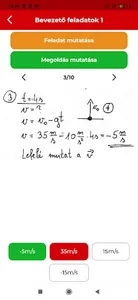 Bevezető feladatok 1
Feladat mutatása
Megoldás mutatása
3/10
③ t = 4s
v = ?
v = v₀ - gt
v₀
⊕
v = 35 m/s - 10 m/s² · 4s = -5 m/s
Lefelé mutat a v⃗
-5m/s
35m/s
15m/s
-15m/s